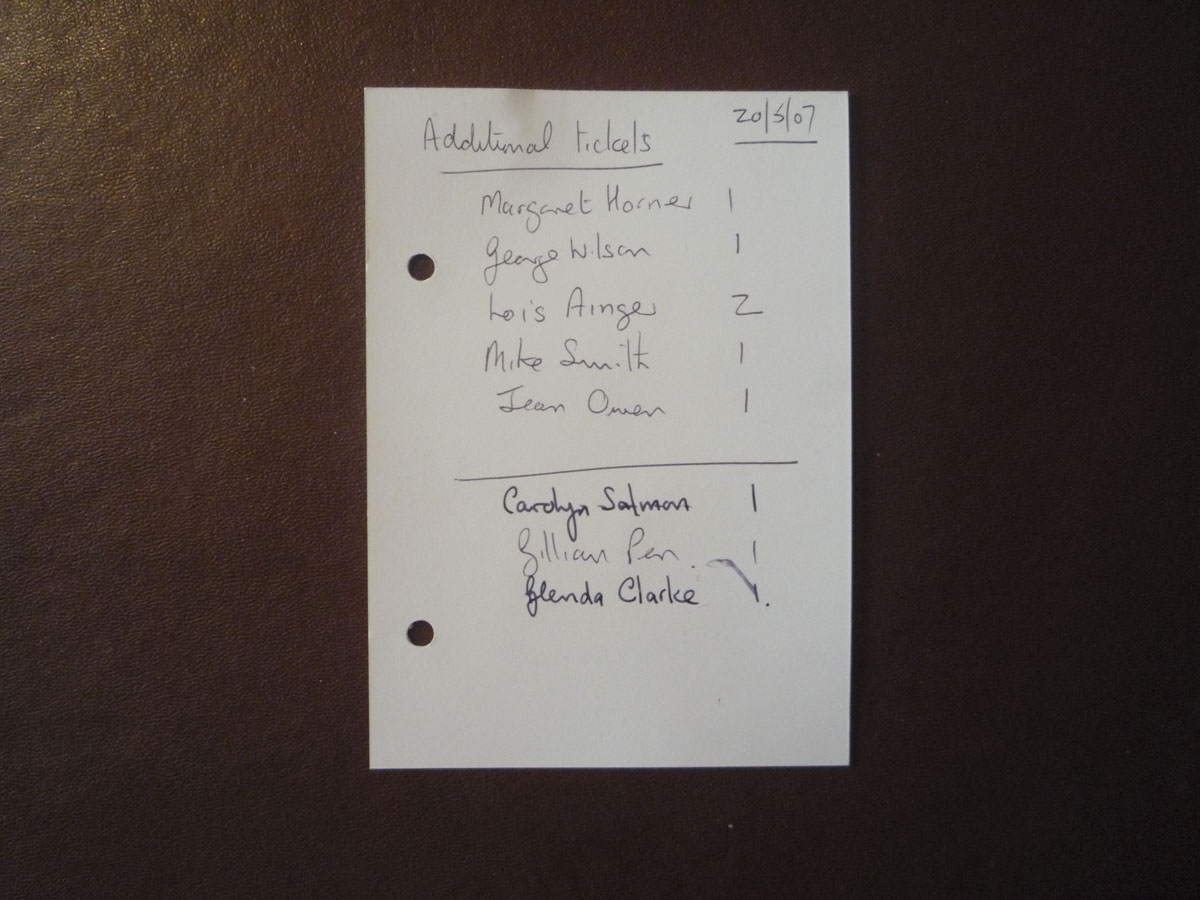 Additional tickets 20/5/07
Margaret Horner 1
George Wilson 1
Lois Ainger 2
Mike Smith 1
Jean Owen 1
Carolyn Salmon 1
Gillian Pen. 1
Glenda Clarke 1.